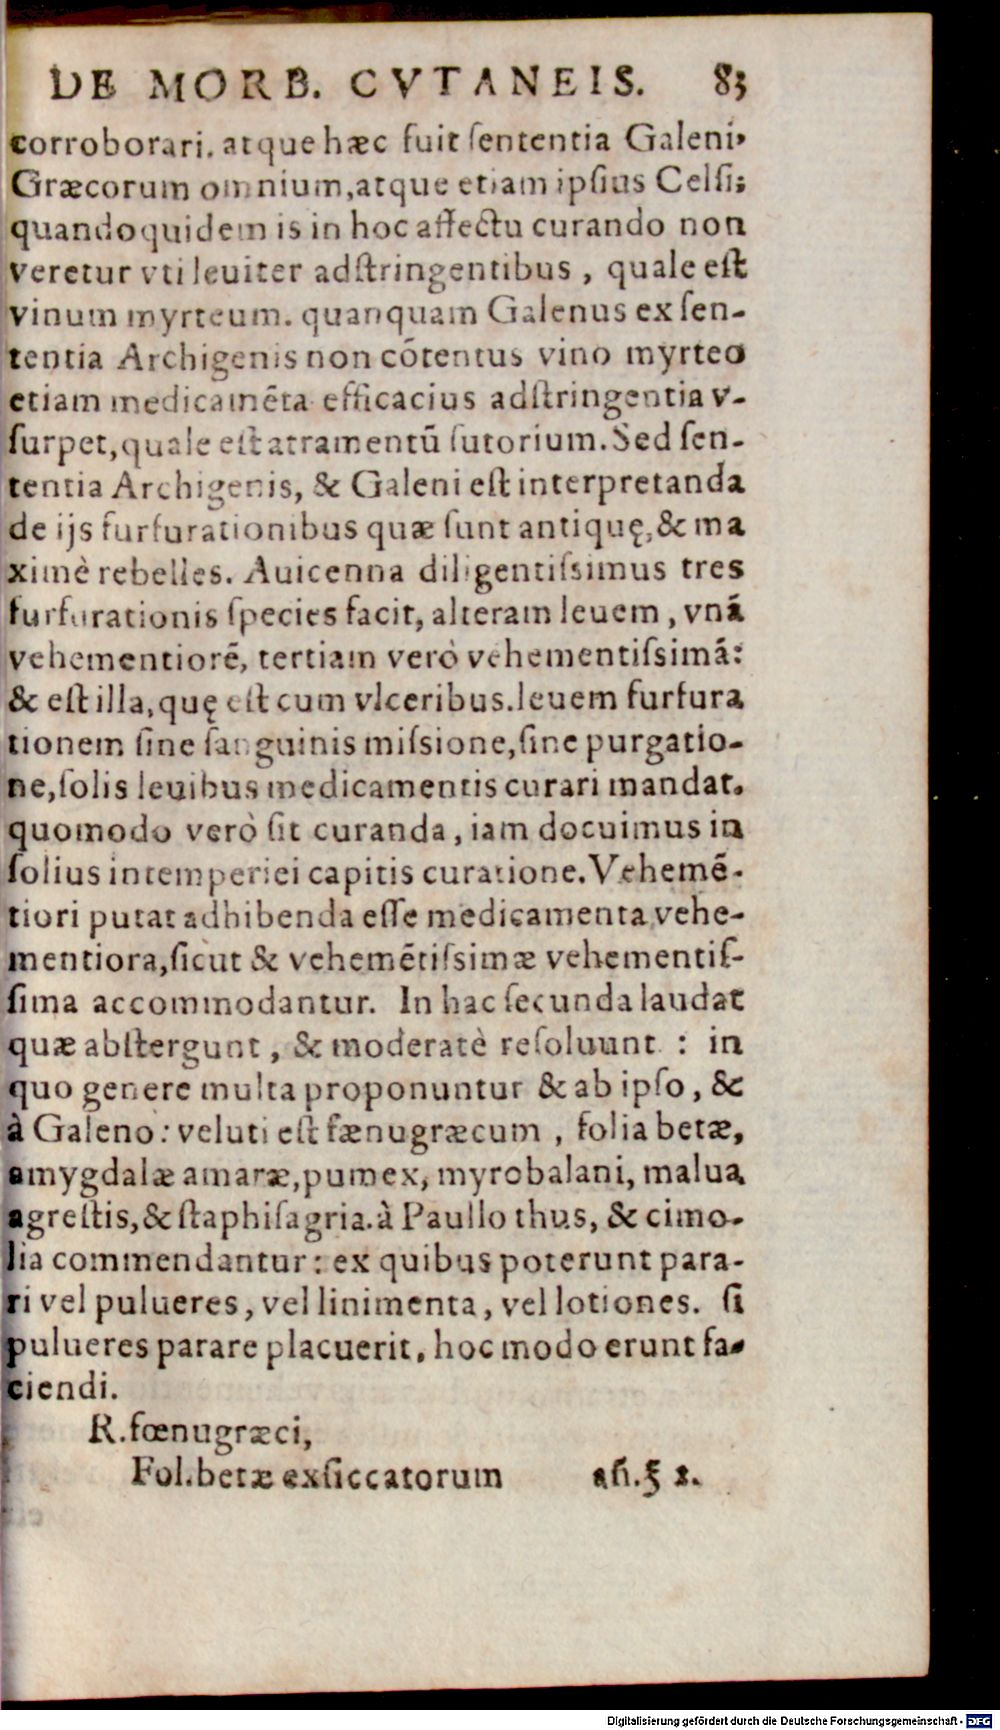 DE MORB. CVTANEIS. 83
corroborari. atque hæc fuit ſententia Galeni,
Græcorum omnium, atque etiam ipſius Celſi;
quandoquidem is in hoc affectu curando non
veretur vti leuiter adſtringentibus, quale eſt
vinum myrteum. quanquam Galenus ex ſen-
tentia Archigenis non cõtentus vino myrteo
etiam medicamẽta efficacius adſtringentia v-
ſurpet, quale eſt atramentũ ſutorium. Sed ſen-
tentia Archigenis, & Galeni eſt interpretanda
de ijs furfurationibus quæ ſunt antiquę, & ma
ximè rebelles. Auicenna diligentiſsimus tres
furfurationis ſpecies facit, alteram leuem, vnã
vehementiorẽ, tertiam verò vehementiſsimã:
& eſt illa, quę eſt cum vlceribus. leuem furfura
tionem ſine ſanguinis miſsione, ſine purgatio-
ne, ſolis leuibus medicamentis curari mandat.
quomodo verò ſit curanda, iam docuimus in
ſolius intemperiei capitis curatione. Vehemẽ-
tiori putat adhibenda eſſe medicamenta vehe-
mentiora, ſicut & vehemẽtiſsimæ vehementiſ-
ſima accommodantur. In hac ſecunda laudat
quæ abſtergunt, & moderatè reſoluunt : in
quo genere multa proponuntur & ab ipſo, &
à Galeno: veluti eſt fænugræcum, folia betæ,
amygdalæ amaræ, pumex, myrobalani, malua
agreſtis, & ſtaphiſagria. à Paullo thus, & cimo-
lia commendantur: ex quibus poterunt para-
ri vel pulueres, vel linimenta, vel lotiones. ſi
pulueres parare placuerit, hoc modo erunt fa-
ciendi.
R. fœnugræci,
Fol. betæ exſiccatorum añ. ℥ 2.
Digitalisierung gefördert durch die Deutsche Forschungsgemeinschaft - DFG